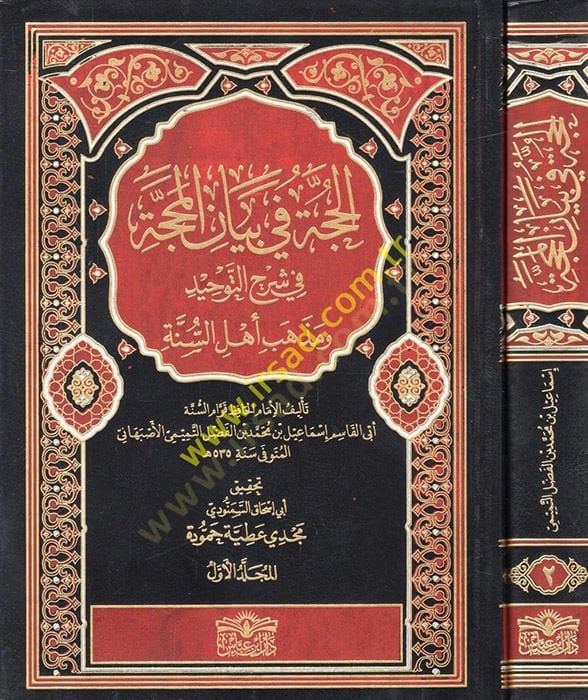 الحجة في بيان المحجة
في شرح التوحيد
ومذهب أهل السنة
تأليف الإمام الحافظ قوام السنة
أبي القاسم إسماعيل بن محمد بن الفضل التيمي الأصبهاني
المتوفى سنة ٥٣٥هـ
تحقيق
أبي إسحاق السمنودي
مجدي عطية حمودة
المجلد الأول
دار ابن عباس
www.irsad.com.tr
الحجة في بيان المحجة
إسماعيل بن محمد بن الفضل التيمي
٢
دار ابن عباس